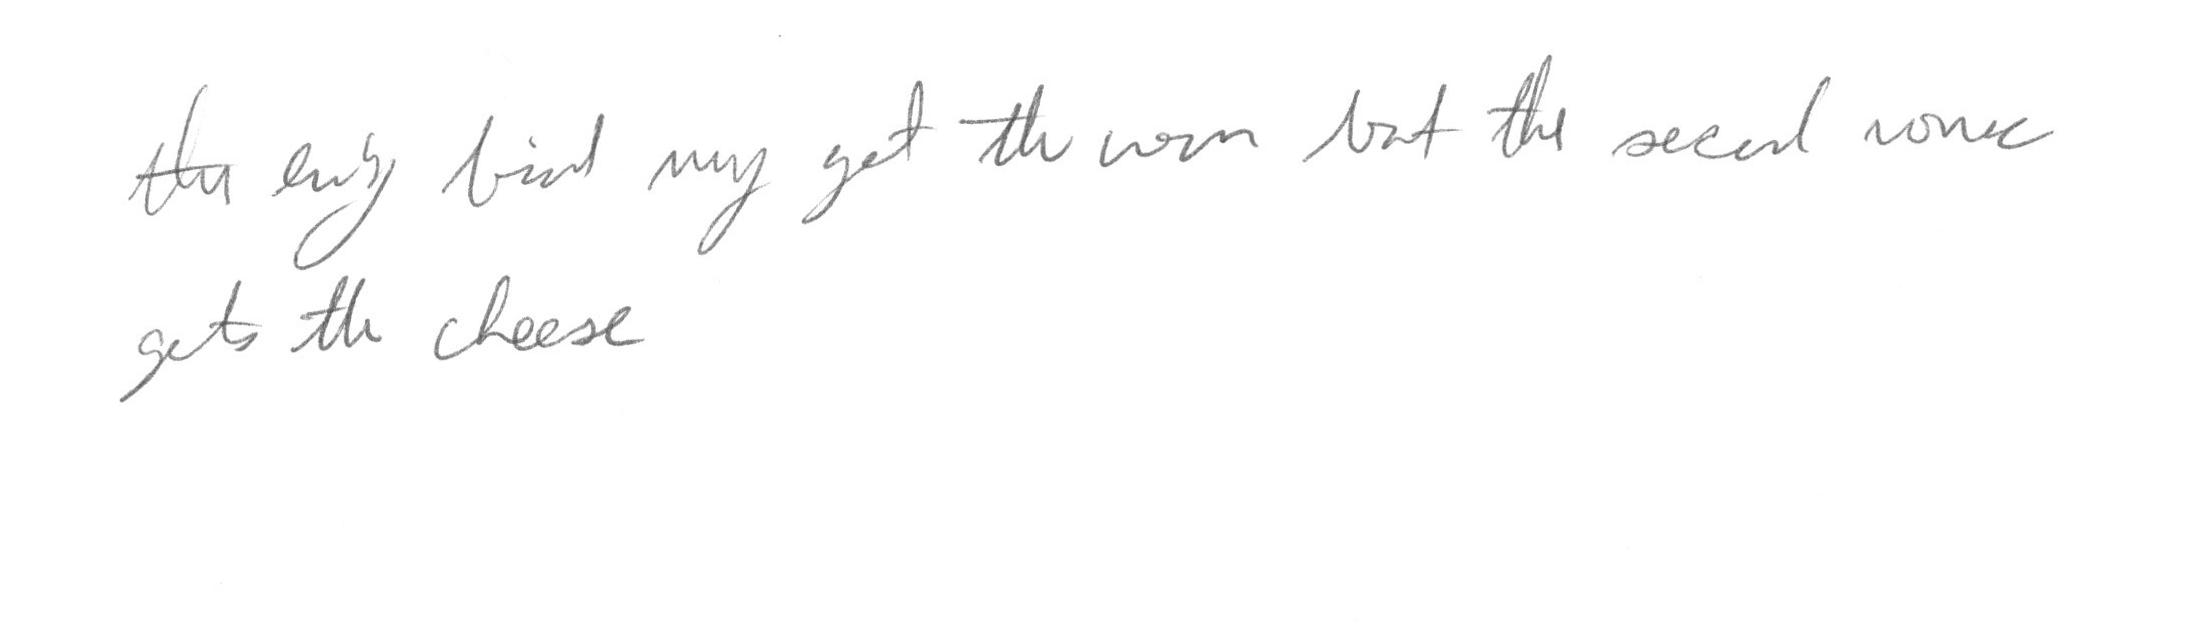 the early bird may get the worm but the second mouse
gets the cheese